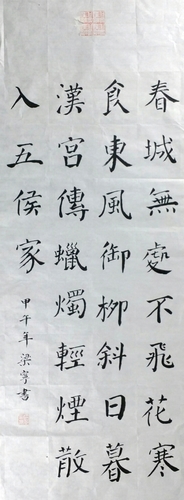 春城無處不飛花寒
食東風御柳斜日暮
漢宮傳蠟燭輕煙散
入五侯家
甲午年梁寧書